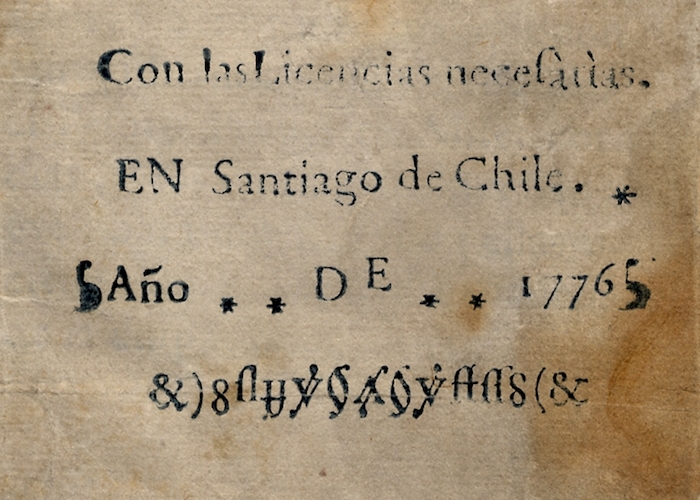 Con las Licencias neceſàrias.
EN Santiago de Chile. *
Año * * DE * * 1776
&)8 8(&